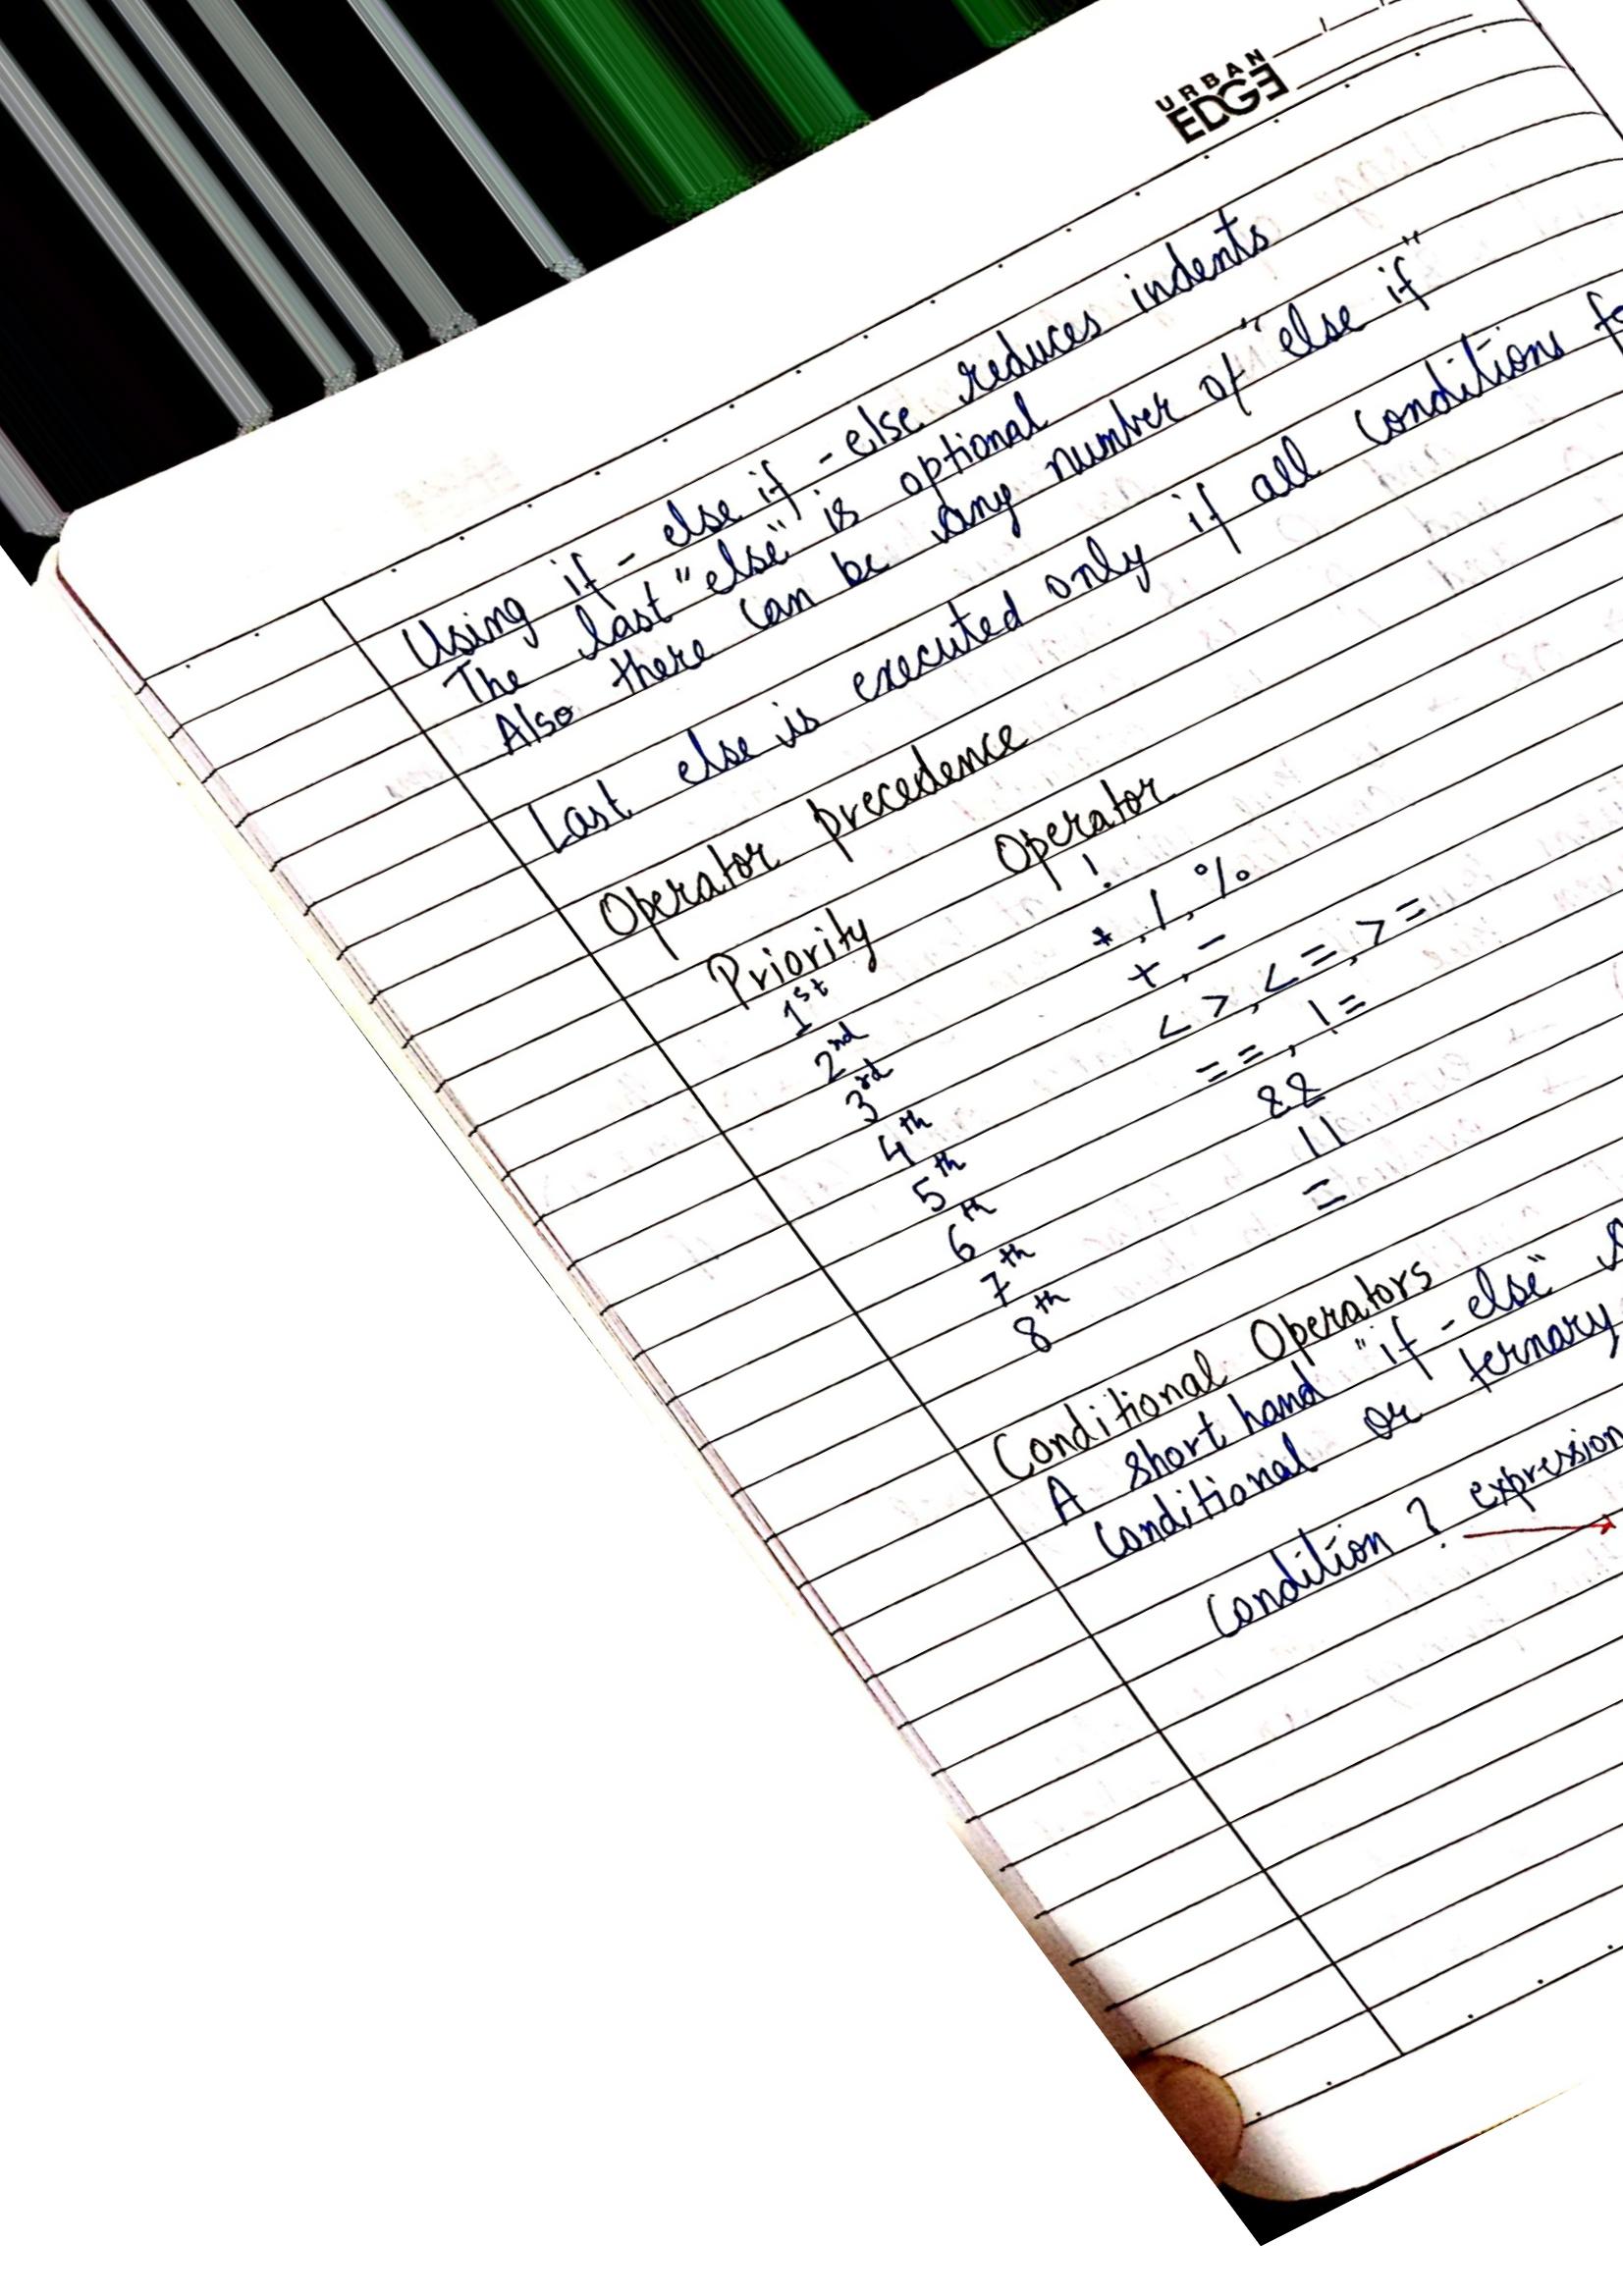 URBAN
EDGE
Using if - else if - else reduces indents
The last "else" is optional
Also there can be any number of "else if"
Last else is executed only if all conditions
Operator precedence
Priority Operator
1st !
2nd *, /, %
3rd +, -
4th < >, <=, >=
5th ==, !=
6th &&
7th ||
8th =
Conditional Operators
A short hand "if - else"
Conditional or ternary
Condition ? expression